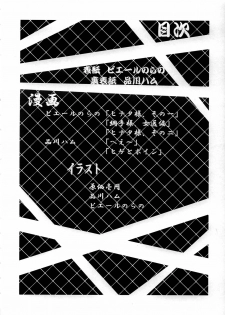 目次
表紙 ピエールのらの
裏表紙 品川ハム
漫画
ピエールのらの「ヒナタ様、その一」
「綱手様、女医編」
「ヒナタ様、その二」
品川ハム「へえ〜」
「ヒゲとボイン」
イラスト
原価壱円
品川ハム
ピエールのらの